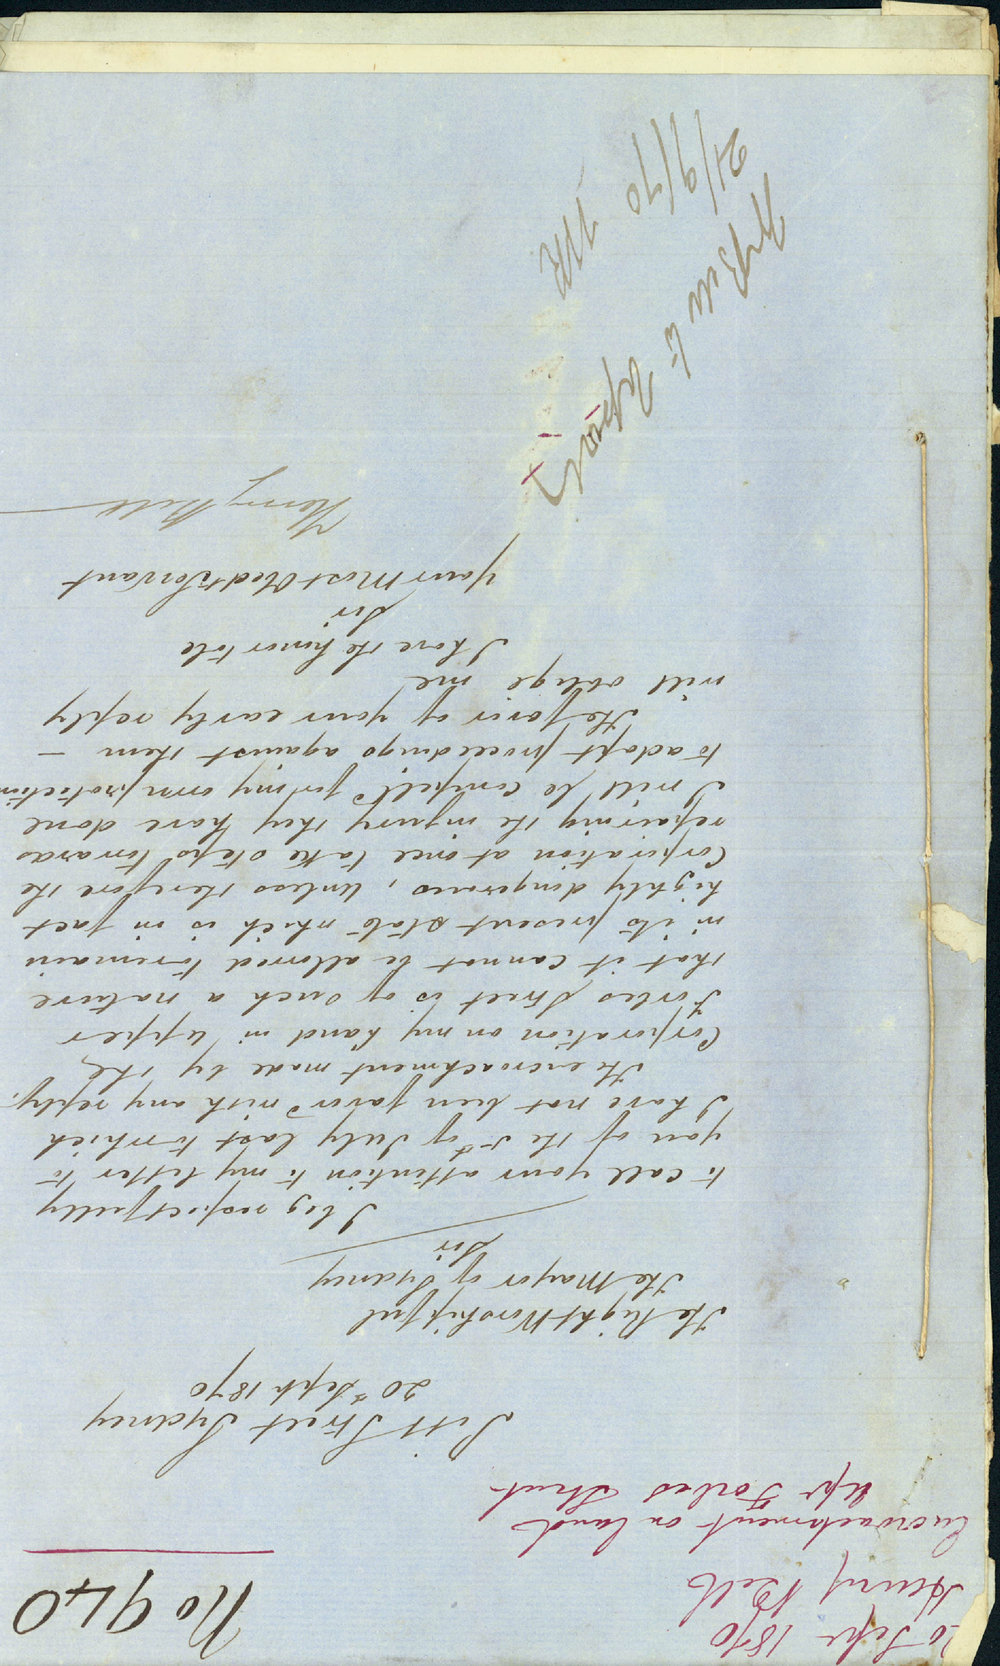 20 Sepr 1870
Henry Bell
Encroachment on land
Upr Forbes Street
No 940
Pitt Street Sydney
20th Sept 1870
The Right Worshipful
The Mayor of Sydney
Sir
I beg respectfully
to call your attention to my letter to
you of the 5th of July last to which
I have not been favord with any reply.
The encroachment made by the
Corporation on my Land in Upper
Forbes Street is of such a nature
that it cannot be allowed to remain
in its present state which is in fact
highly dangerous, Unless therefore the
Corporation at once take steps towards
repairing the injury they have done
I will be compelld for my own protection
to adopt proceedings against them —
The favor of your early reply
will oblige me
I have the honor to be
Sir
Your Most Obedt Servant
Henry Bell
Mr Bell to Report
21/9/70